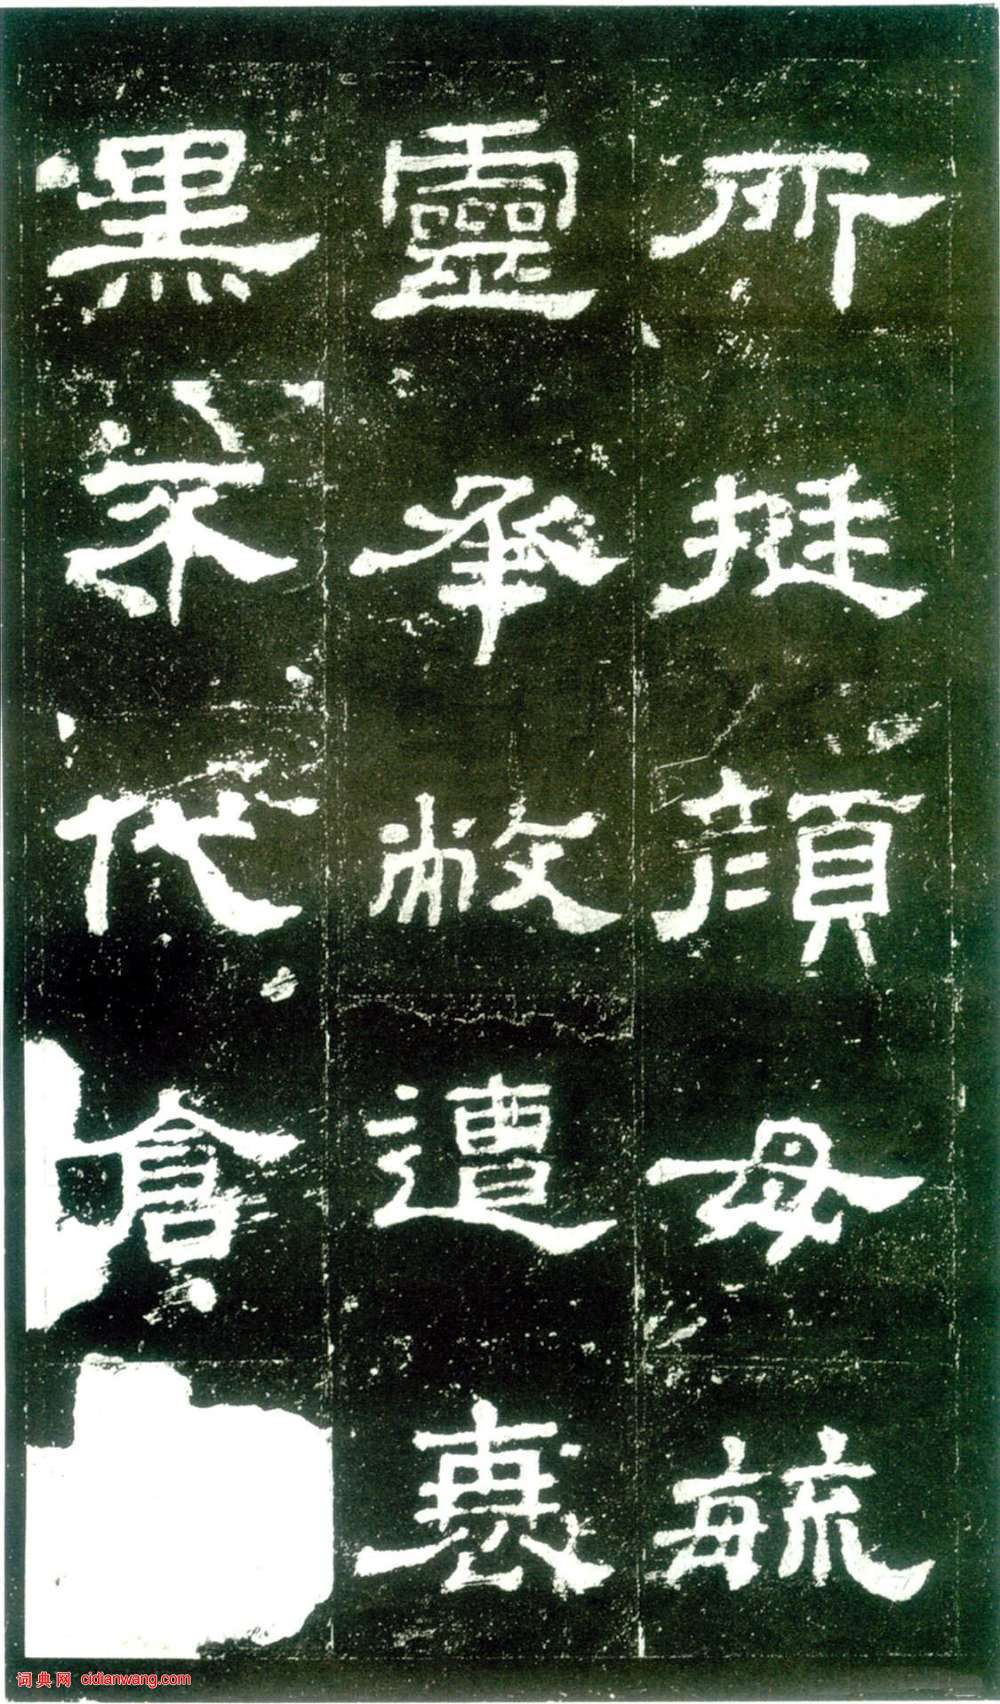 所挺顏母毓
靈承敝遭衰
黑不代倉
词典网 cidianwang.com